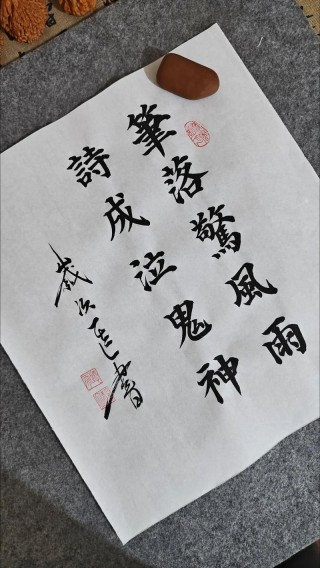 筆落驚風雨
詩成泣鬼神
歲次
書